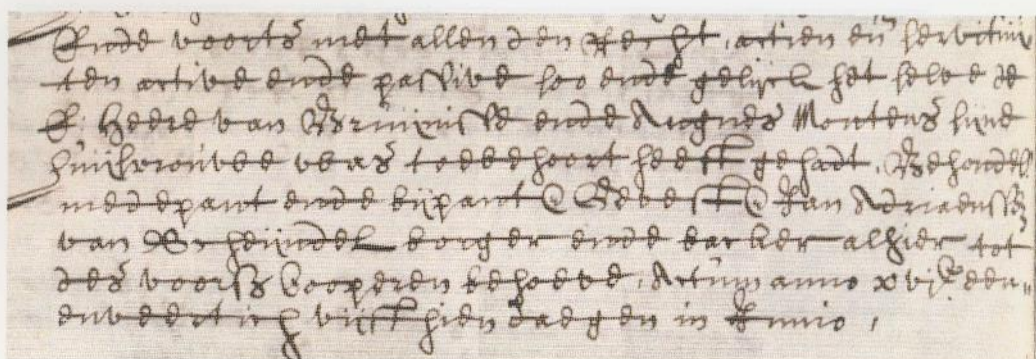 Ende voorts met allen den Recht, actien en̄ servituÿ
ten active ende passive soo ende gelijck het selve de
E. Heere van Bruÿnisse ende Angnes Montens sijne
huisvrouwe was toebehoort heeft gehadt. Behoudel
mede pant ende bijpant @ Gevest @ Jan Adriaenssz
van Scheijndel borger ende backer alhier tot
des voorsz coopers behoeve. Actum anno xvjC een=
enveertich vijffthien daegen in Junio,